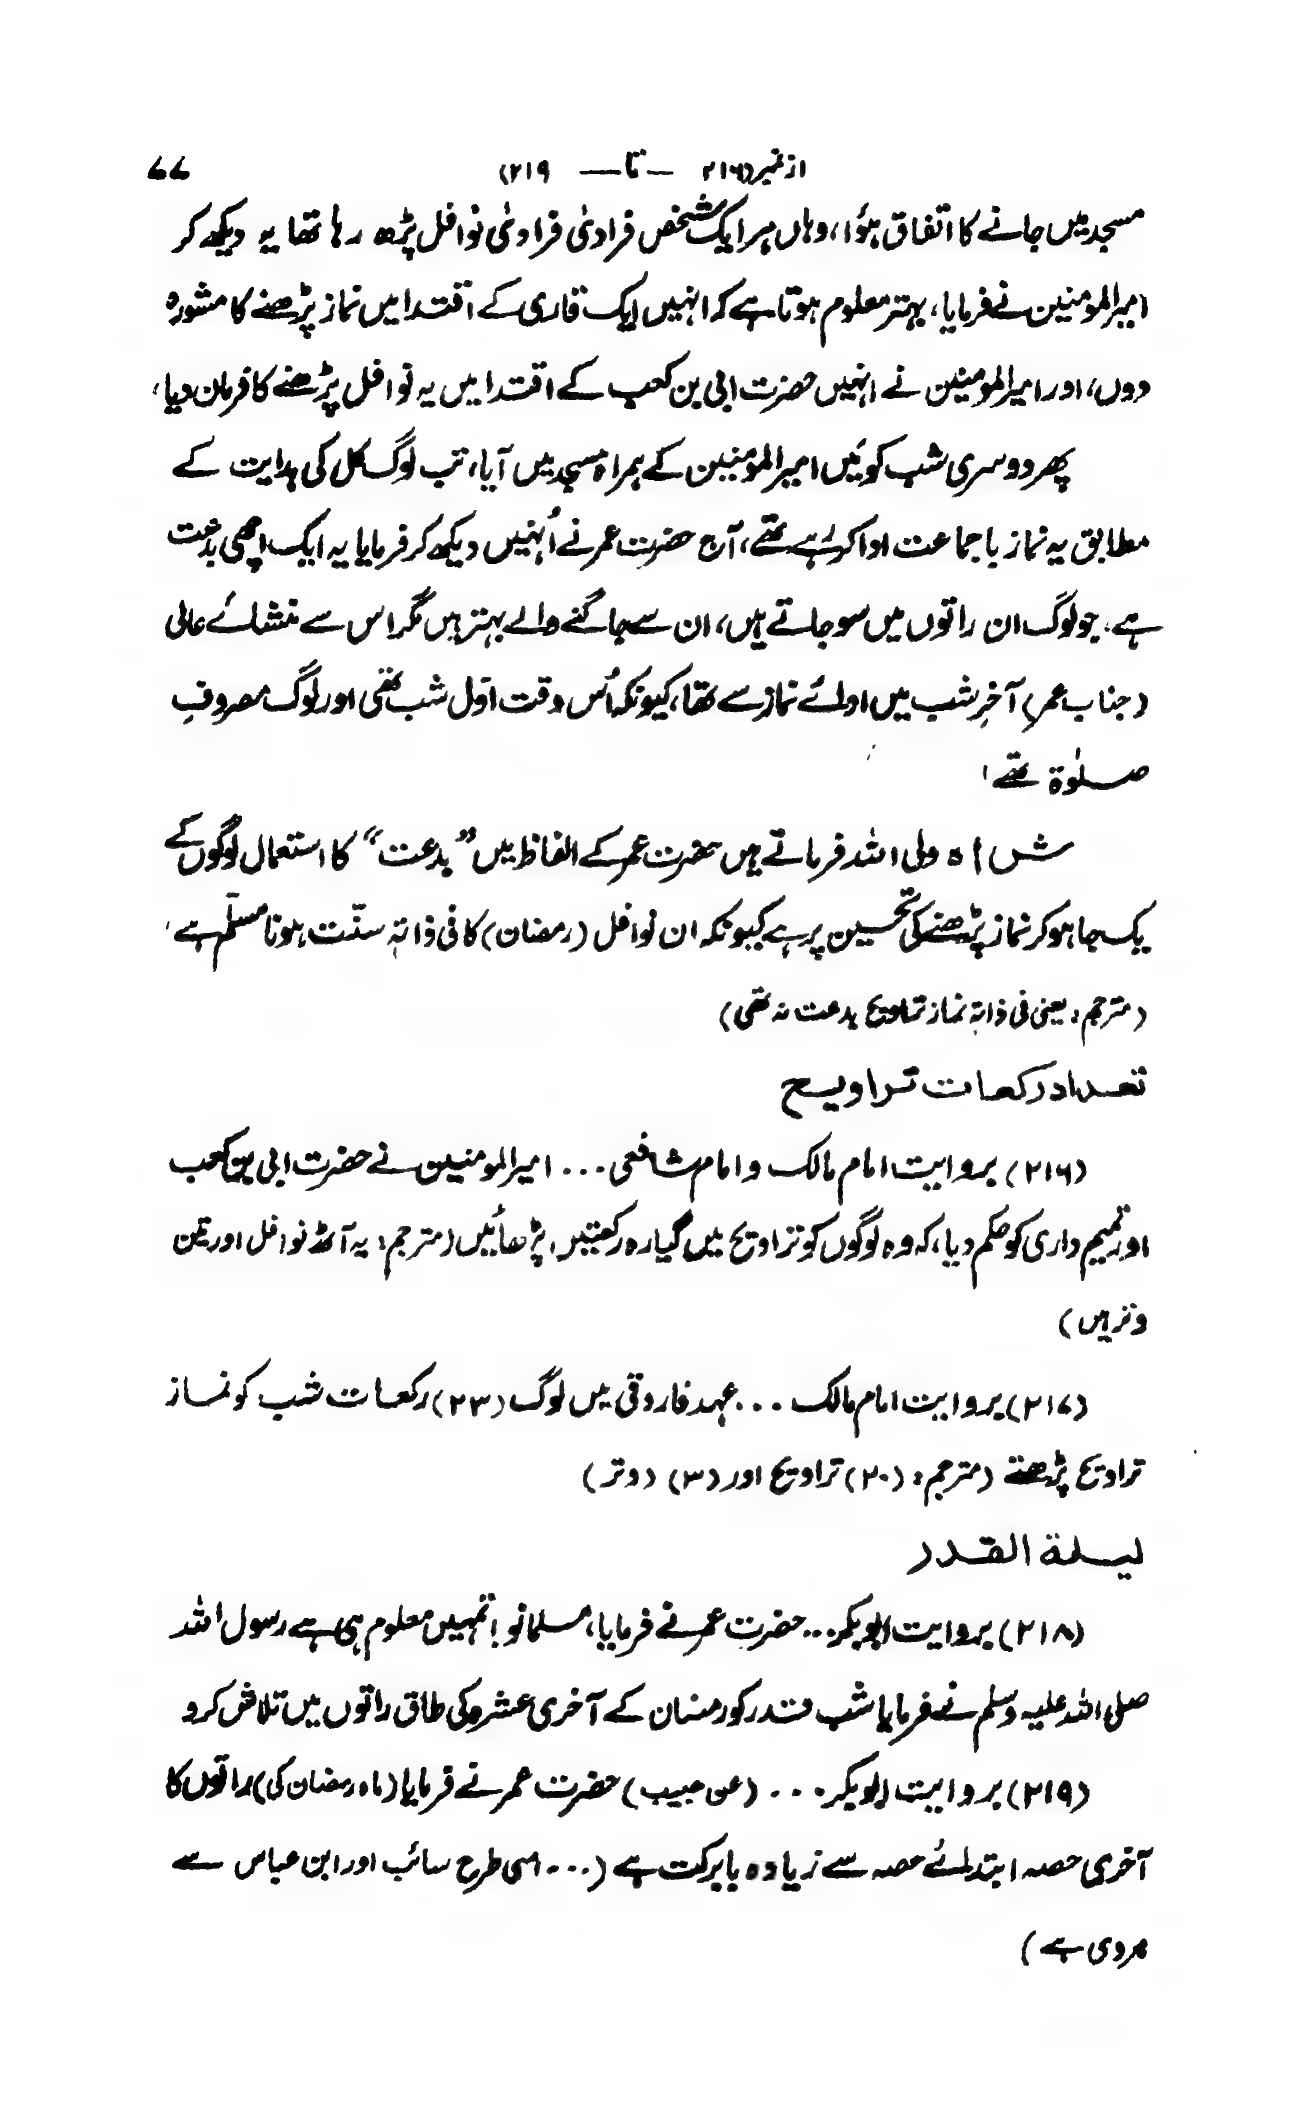 از نمبر (۲۱۶ — تا — ۲۱۹) ۷۷
مسجد میں جانے کا اتفاق ہؤا، وہاں ہر ایک شخص فرادیٰ فرادیٰ نوافل پڑھ رہا تھا یہ دیکھ کر
امیرالمومنین نے فرمایا، بہتر معلوم ہوتا ہے کہ انہیں ایک قاری کے اقتدا میں نماز پڑھنے کا مشورہ
دوں، اور امیرالمومنین نے انہیں حضرت ابی بن کعب کے اقتدا میں یہ نوافل پڑھنے کا فرمان دیا،
پھر دوسری شب کو میں امیرالمومنین کے ہمراہ مسجد میں آیا، تب لوگ کل کی ہدایت کے
مطابق یہ نماز باجماعت ادا کر رہے تھے، آج حضرت عمر نے اُنہیں دیکھ کر فرمایا یہ ایک اچھی بدعت
ہے، جو لوگ ان راتوں میں سو جاتے ہیں، ان سے جاگنے والے بہتر ہیں مگر اس سے منشائے عالی
(جناب عمر) آخرِ شب میں ادائے نماز سے تھا، کیونکہ اُس وقت اوّل شب تھی اور لوگ مصروفِ
صلوٰۃ تھے'
شاہ ولی اللہ فرماتے ہیں حضرت عمر کے الفاظ میں ”بدعت“ کا استعمال لوگوں کے
یک جا ہو کر نماز پڑھنے کی تحسین پر ہے کیونکہ ان نوافل (رمضان) کا فی ذاتہٖ سنّت ہونا مسلّم ہے'
(مترجم: یعنی فی ذاتہٖ نماز تراویح بدعت نہ تھی)
تعداد رکعات تراویح
(۲۱۶) بروایت امام مالک و امام شافعی ... امیرالمومنین نے حضرت ابی بن کعب
اور تمیم داری کو حکم دیا، کہ وہ لوگوں کو تراویح میں گیارہ رکعتیں پڑھائیں (مترجم: یہ آٹھ نوافل اور تین
وتر ہیں)
(۲۱۷) بروایت امام مالک ... عہد فاروقی میں لوگ (۲۳) رکعات شب کو نماز
تراویح پڑھتے (مترجم: (۲۰) تراویح اور (۳) (وتر)
لیلۃ القدر
(۲۱۸) بروایت ابوبکر... حضرت عمر نے فرمایا، مسلمانو! تمہیں معلوم ہی ہے رسول اللہ
صلی اللہ علیہ وسلم نے فرمایا شب قدر کو رمضان کے آخری عشرہ کی طاق راتوں میں تلاش کرو
(۲۱۹) بروایت ابوبکر ... (عن حبیب) حضرت عمر نے فرمایا (ماہ رمضان کی) راتوں کا
آخری حصہ ابتدائے حصہ سے زیادہ بابرکت ہے (... اسی طرح سائب اور ابن عباس سے
مروی ہے)